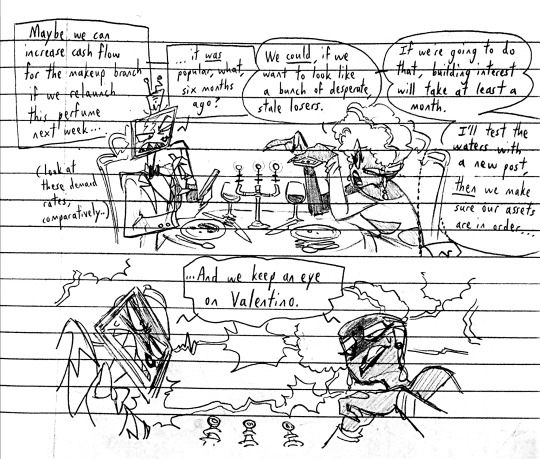 Maybe we can
increase cash flow
for the makeup branch
if we relaunch
this perfume
next week...
...it was
popular, what,
six months
ago?
(look at
these demand
rates,
comparatively..)
We could, if we
want to look like
a bunch of desperate
stale losers.
If we're going to do
that, building interest
will take at least a
month.
I'll test the
waters with
a new post,
then we make
sure our assets
are in order...
...And we keep an eye
on Valentino.